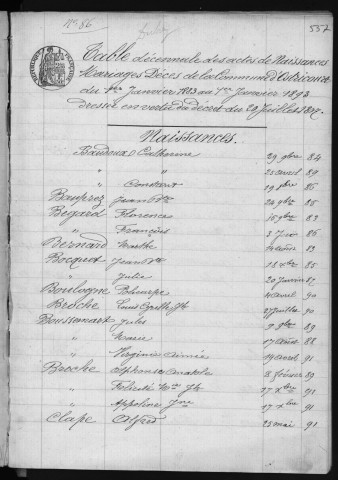 N° 86
537
Table décennale des actes de Naissances
Mariages Décès de la Commune d'Ostricourt
du 1er Janvier 1883 au 1er Janvier 1893
dressée en vertu du décret du 20 Juillet 1807.
Naissances.
Baudoux Catherine 29 9bre 84
" Constant 25 avril 89
Bauprez Jean Bte 24 9bre 86
Begard Florence 15 9bre 83
" François 3 86
Bernard Marthe 83
Bocquet Jean Bte 18 xbre 85
" Julie 20 Janvier 87
Boulogne Philippe avril 90
Broche Louis Jh 27 Juillet 90
Boussemart Jules 9bre 89
" Marie 17 août 88
" Virginie Aimée 19 avril 91
Broche Alphonse Anatole 8 février 89
" Félicité Mie Jh 17 xbre 91
" Appoline Jne 17 xbre 91
Clape Alfred 23 mai 91